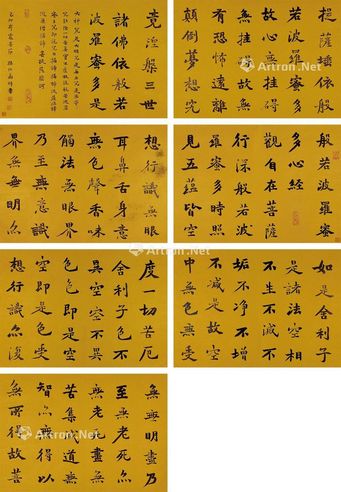 般若波羅蜜
多心經
觀自在菩薩
行深般若波
羅蜜多時照
見五蘊皆空
度一切苦厄
舍利子色不
異空空不異
色色即是空
空即是色受
想行識亦復
如是舍利子
是諸法空相
不生不滅不
垢不淨不增
不減是故空
中無色無受
想行識無眼
耳鼻舌身意
無色聲香味
觸法無眼界
乃至無意識
界無無明亦
無無明盡乃
至無老死亦
無老死盡無
苦集滅道無
智亦無得以
無所得故菩
提薩埵依般
若波羅蜜多
故心無罣礙
無罣礙故無
有恐怖遠離
顛倒夢想究
竟涅槃三世
諸佛依般若
波羅蜜多是
Artron.Net
Artron.Net
Artron.Net
Artron.Net
Artron.Net
Artron.Net
Artron.Net